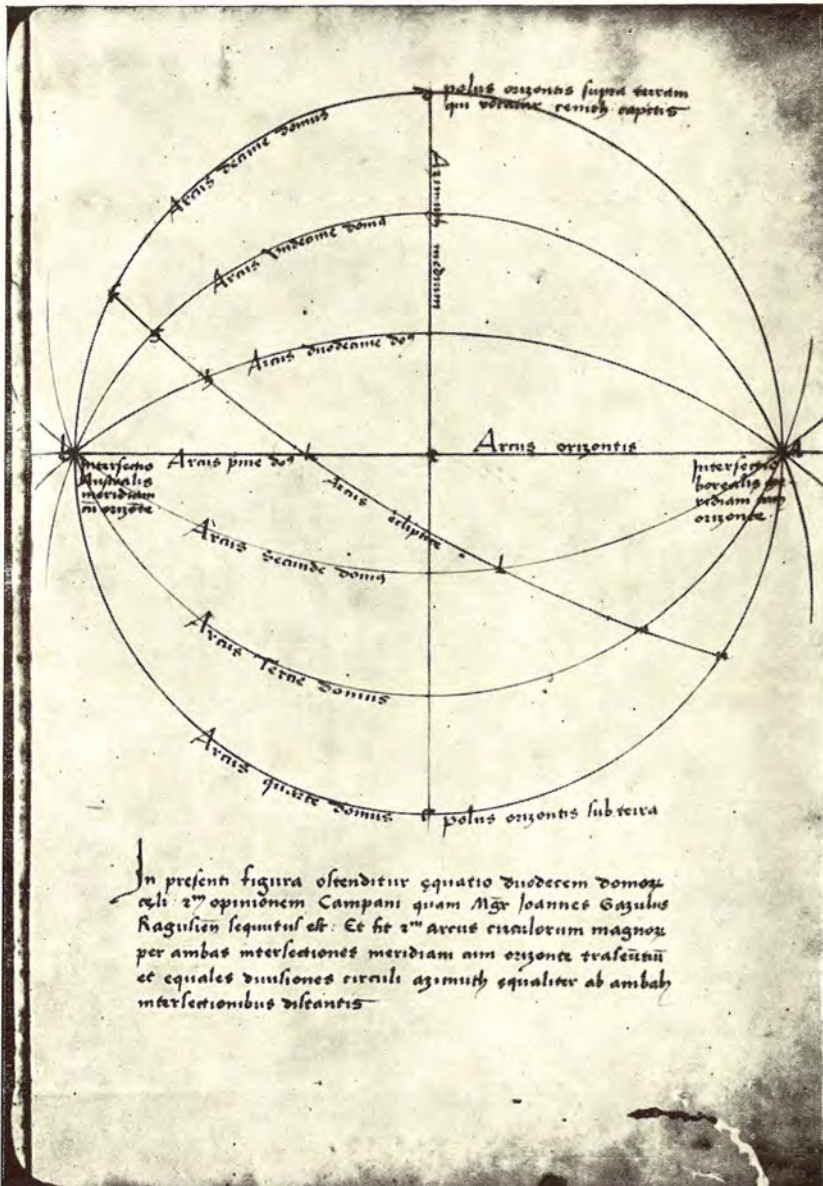 polus orizontis supra terram
qui vocatur cenith capitis
Arcus decime domus
Azimuth medium
Arcus undecime domꝰ
Arcus duodecime doꝰ
b
a
Arcus orizontis
Arcus pͥme doꝰ
Intersectio
Australis
meridiani
cū orizōte
Intersectio
borealis me-
ridiani cum
orizonte
Arcus ecliptice
Arcus secunde domꝰ
Arcus Tercie domus
Arcus quarte domus
polus orizontis sub terra
In presenti figura ostenditur equatio duodecem domoꝝ
celi 2ᵐ opinionem Campani quam Mgr̄ Joannes Gazulus
Ragusien̄ sequutus est: Et fit 2ᵐ arcus circulorum magnoꝝ
per ambas intersectiones meridiani cum orizonte traseūtiū
et equales diuisiones circuli azimuth equaliter ab ambab
intersectionibus distantis